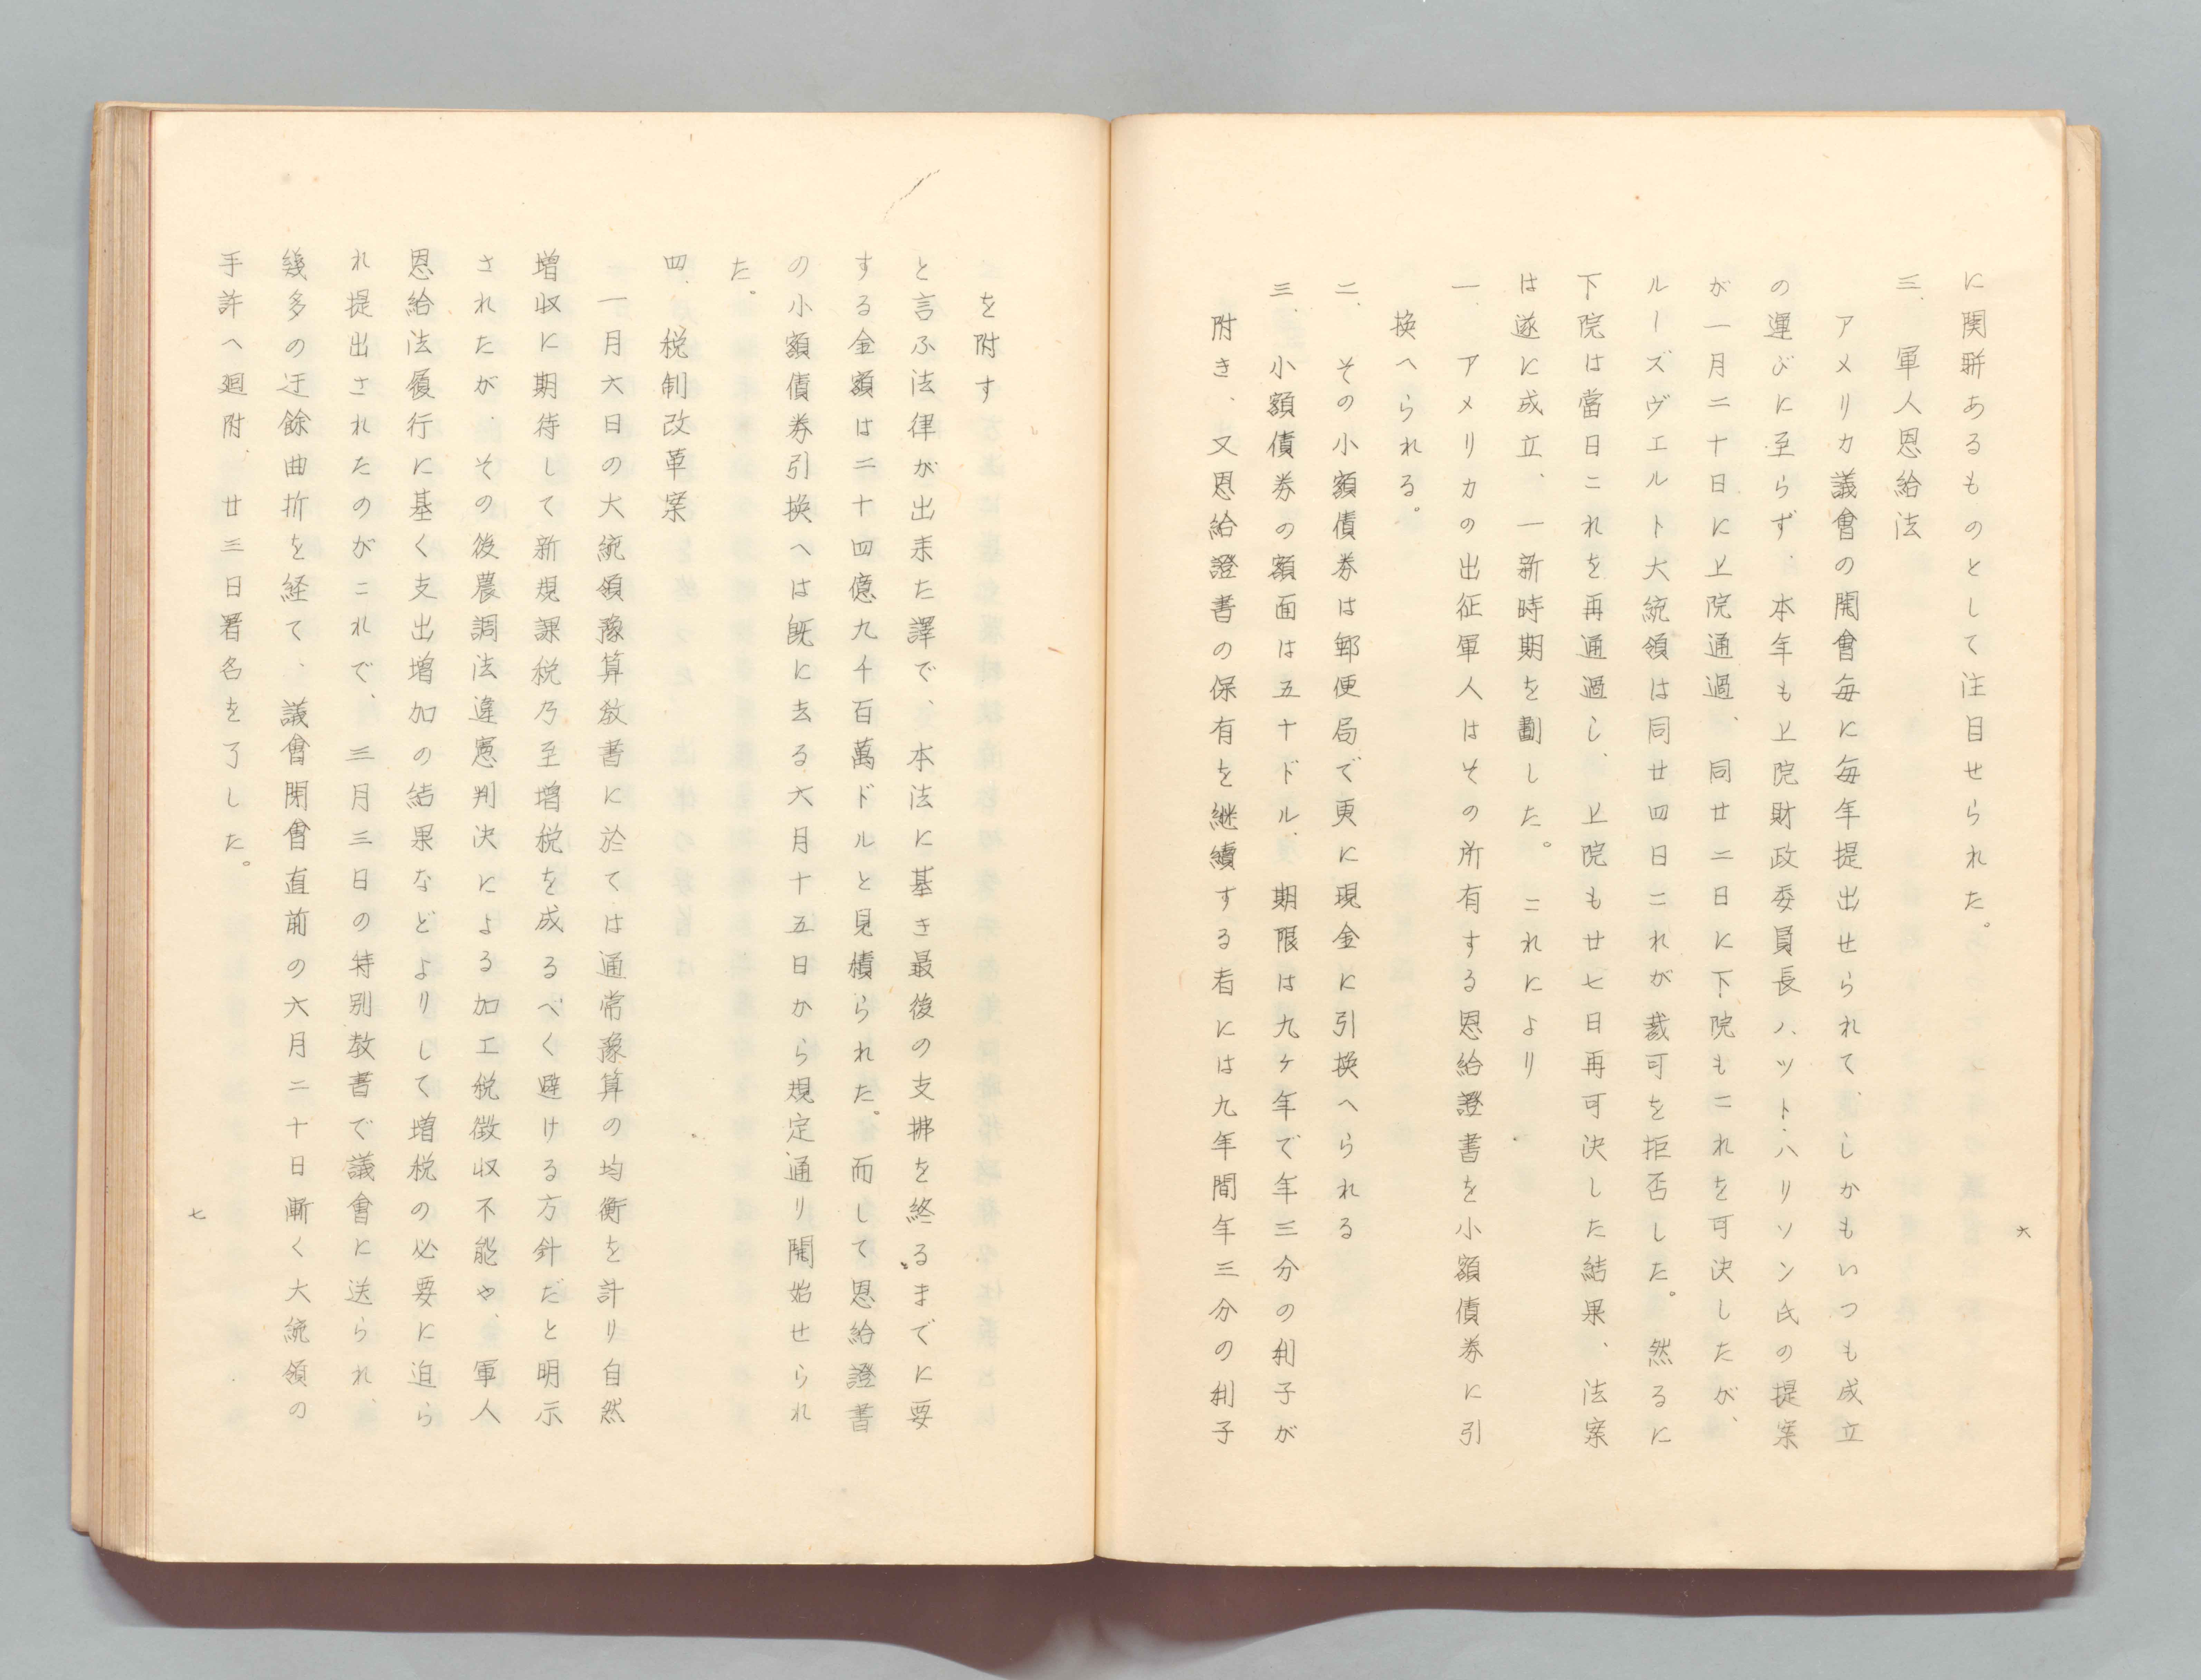 に関聯あるものとして注目せられた。
三、軍人恩給法
アメリカ議會の開會毎に毎年提出せられて、しかもいつも成立
の運びに至らず、本年も上院財政委員長ハツト・ハリソン氏の提案
が一月二十日に上院通過、同廿二日に下院もこれを可決したが、
ルーズヴエルト大統領は同廿四日これが裁可を拒否した。然るに
下院は當日これを再通過し、上院も廿七日再可決した結果、法案
は遂に成立、一新時期を劃した。これにより
一、アメリカの出征軍人はその所有する恩給證書を小額債券に引
換へられる。
二、その小額債券は郵便局で更に現金に引換へられる
三、小額債券の額面は五十ドル、期限は九ヶ年で年三分の利子が
附き、又恩給證書の保有を継續する者には九年間年三分の利子
六
を附す
と言ふ法律が出来た譯で、本法に基き最後の支拂を終るまでに要
する金額は二十四億九千百萬ドルと見積られた。而して恩給證書
の小額債券引換へは既に去る六月十五日から規定通り開始せられ
た。
四、税制改革案
一月六日の大統領豫算教書に於ては通常豫算の均衡を計り自然
増収に期待して新規課税乃至増税を成るべく避ける方針だと明示
されたが、その後農調法違憲判決による加工税徴収不能や、軍人
恩給法履行に基く支出増加の結果などよりして増税の必要に迫ら
れ提出されたのがこれで、三月三日の特別教書で議會に送られ、
幾多の迂餘曲折を経て、議會閉會直前の六月二十日漸く大統領の
手許へ廻附、廿三日署名を了した。
七